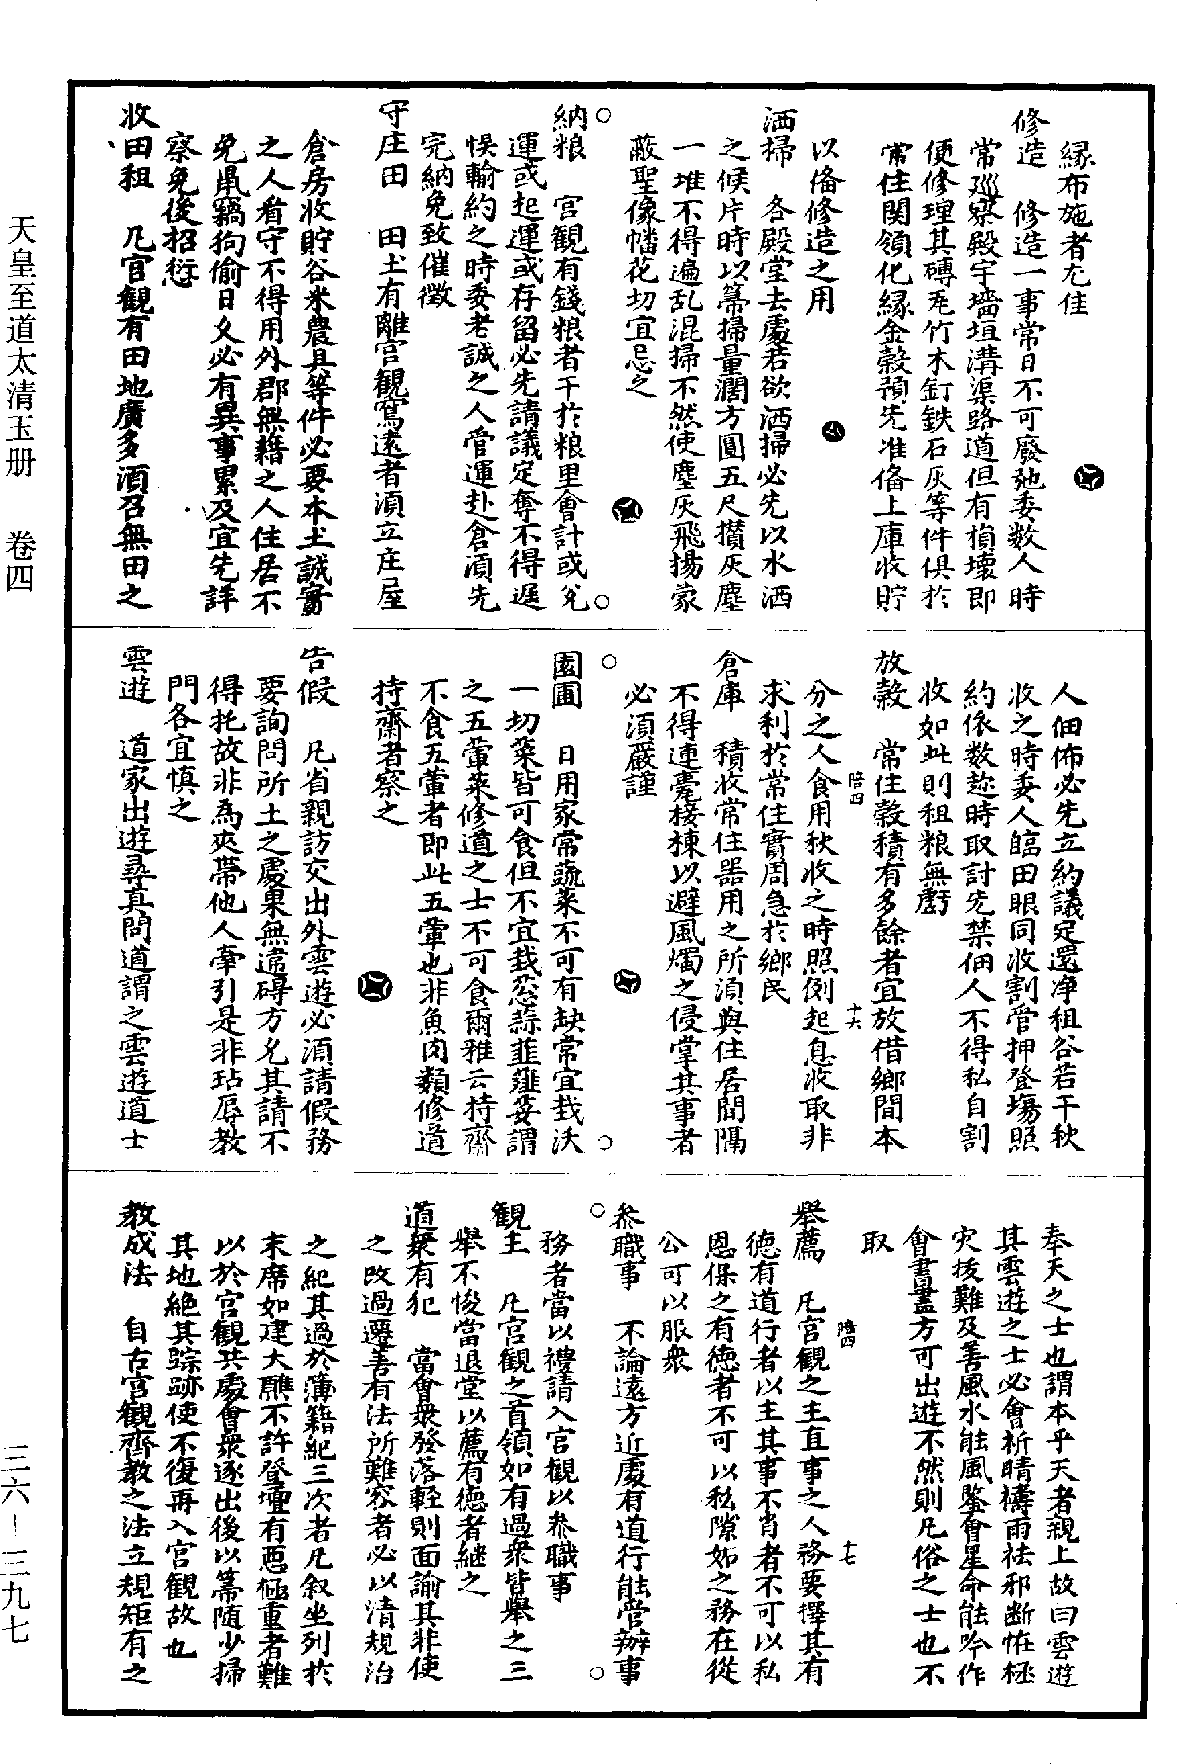 縁布施者尤佳
修造　修造一事常日不可廢弛委数人時
常巡察殿宇墻垣溝渠路道但有損壊即
便修理其磚瓦竹木釘鉄石灰等件俱於
常住関領化縁金穀預先准俻上庫收貯
以俻修造之用
洒掃　各殿堂去處若欲洒掃必先以水洒
之候片時以箒掃量濶方圓五尺攢灰塵
一堆不得遍乱混掃不然使塵灰飛揚蒙
蔽聖像幡花切宜忌之
納粮　宮観有錢粮者干扵粮里會計或兊
運或起運或存留必先請議定奪不得遅
悞輸約之時委老誠之人管運赴倉湏先
完納免致催徵
守庄田　田土有離宮観窵遠者湏立庄屋
倉房收貯谷米農具等件必要本土誠實
之人看守不得用外郡無籍之人住居不
免鼠竊狗偷日久必有異事累及宜先詳
察免後招愆
收田租　凡官観有田地廣多湏召無田之
人佃佈必先立約議定還净租谷若干秋
收之時委人臨田眼同收割管押登塲照
約依数趂時取討宄禁佃人不得私自割
收如此則租粮無虧
放穀　常住穀積有多餘者宜放借鄉間本
陪四　十六
分之人食用秋收之時照例起息收取非
求利扵常住實周急扵鄉民
倉庫　積收常住器用之所湏與住居間隔
不得連甍接棟以避風燭之侵掌其事者
必湏嚴謹
園圃　日用家常蔬菜不可有缺常宜栽沃
一切菜皆可食但不宜栽葱蒜韮薤荽謂
之五葷菜修道之士不可食爾雅云持齋
不食五葷者即此五葷也非魚肉類修道
持齋者察之
告假　凡省親訪交出外雲遊必湏請假務
要詢問所土之處果無違碍方允其請不
得托故非為夾帶他人牽引是非玷辱教
門各宜慎之
雲遊　道家出遊尋真問道謂之雲遊道士
奉天之士也謂本乎天者親上故曰雲遊
其雲遊之士必會祈晴禱雨祛邪断恠拯
灾拔難及善風水能風鑒會星命能吟作
會書畫方可出遊不然則凡俗之士也不
取
陪四　十七
舉薦　凡宮観之主直事之人務要擇其有
德有道行者以主其事不肖者不可以私
恩保之有德者不可以私隙妬之務在從
公可以服衆
叅職事　不論遠方近處有道行能管辦事
務者當以禮請入宮観以叅職事
観主　凡宮観之首領如有過衆皆舉之三
舉不悛當退堂以薦有德者継之
道衆有犯　當會衆發落輕則面諭其非使
之改過遷善有法所難容者必以清規治
之紀其過扵簿籍紀三次者凡叙坐列扵
末席如建大醮不許登壇有悪極重者難
以扵宮観共處會衆逐出後以箒随少掃
其地絶其踪跡使不復再入宮観故也
教成法　自古宮観齊教之法立規矩有之
天皇至道太清玉册　卷四
三六－三九七